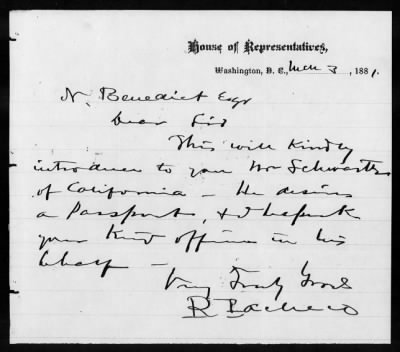 House of Representatives,
Washington, D. C., Mch 3, 1881.
N. Benedict Esqr
Dear Sir
This will Kindly
introduce to you Mr Schwartz
of California - He desires
a Passport, & I bespeak
your Kind offices in his
behalf -
Very Truly Yours
R Pacheco